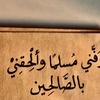 وَفَّنِي مُسلِمًا وَأَلْحِقْنِيْ
بِالصَّالِحِينَ